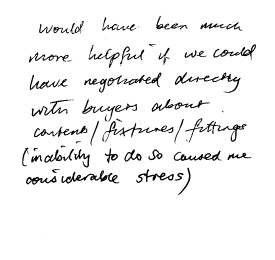 would have been much
more helpful if we could
have negotiated directly
with buyers about
contents/fixtures/fittings
(inability to do so caused me
considerable stress)